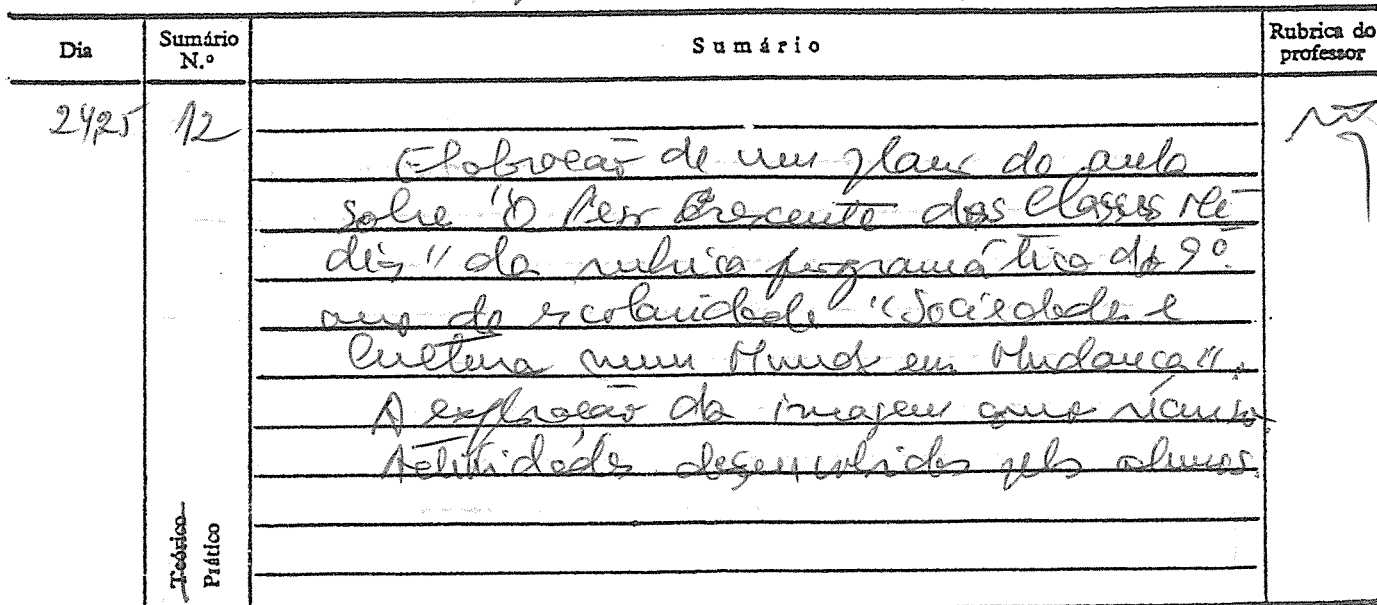 Dia
Sumário N.º
Sumário
Rubrica do professor
24,25
12
Elaboração de um plano de aula
sobre "O Peso Crescente das Classes Mé-
dias" da rubrica programática do 9º
ano de escolaridade "Sociedade e
Cultura num Mundo em Mudança".
A exploração da imagem como recurso
Actividades desenvolvidas pelos alunos.
Teórico
Prático